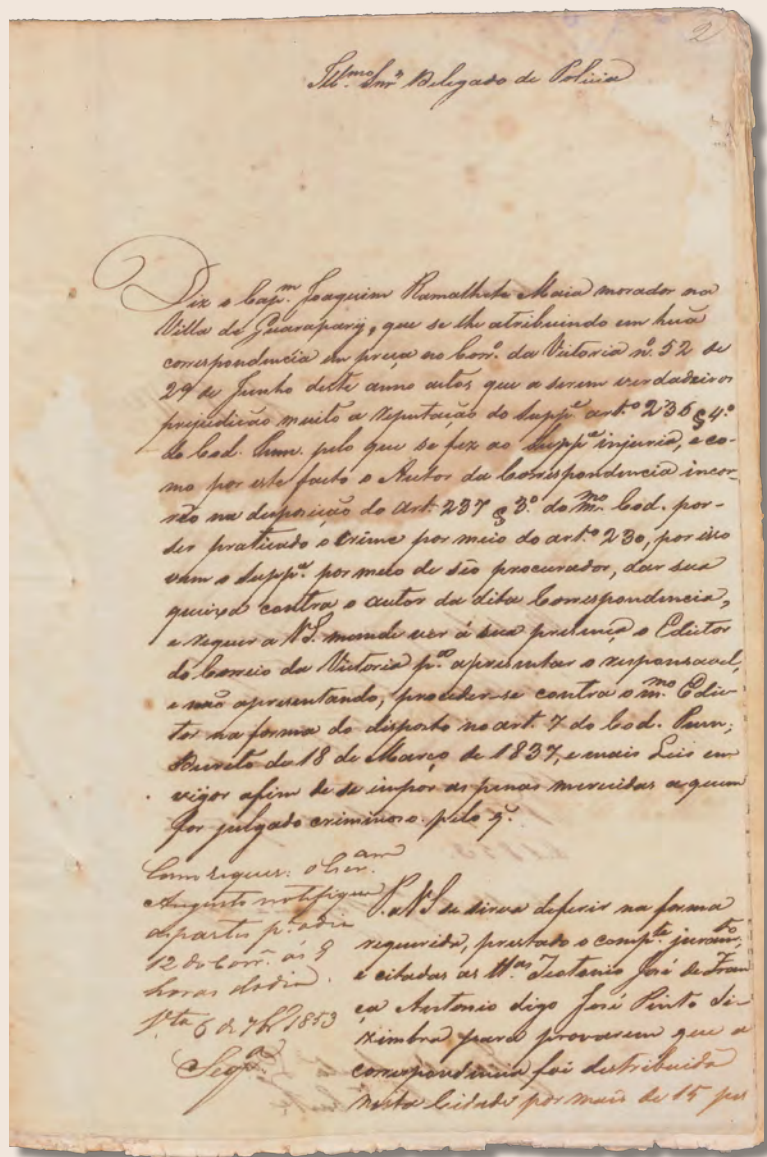 2
Ill.mo Snr Delegado de Policia
Diz o Cap.m Joaquim Ramalhete Maia morador na
Villa de Guarapary, que se lhe atribuindo em huã
correspondencia em preça no Corr.o da Victoria n.o 52 de
29 de Junho deste anno actos que a serem verdadeiros
prejudicão muito a reputação do Supp.e art.o 236 § 4.o
do Cod. Penn. pelo que se fez ao Supp.e injuria, e co-
mo por este facto o Autor da Correspondencia incor-
réo na desposição do Art. 237 § 3.o do m.mo Cod. por-
ter praticado o crime por meio do art.o 230, por isso
vem o Supp.e por meio de séo procurador, dar sua
queixa contra o autor da dita Correspondencia,
e requer a V.S. mande vir á sua presença o Edictor
do Correio da Victoria p.a apresentar o responsavel,
e não apresentando, proceder-se contra o m.mo Edic-
tor na forma do disposto no art. 7 do Cod. Penn;
Decreto de 18 de Março de 1837, e mais Leis em
vigor afim de se impor as penas merecidas a quem
for julgado criminoso. pelo q.
Como requer: o
Augusto notifique
as partes p.a o dia
12 do Corr. ás 9
horas do dia.
V.ta 6 de 7br 1853
P. a V.S. se sirva deferir na forma
requerida, prestado o comp.te juram.to,
e citadas as tt.as Teotonio José de Fran
ça Antonio digo José Pinto di
Ximbra para provarem que a
correspondencia foi destribuida
nesta Cidade por mais de 15 pes